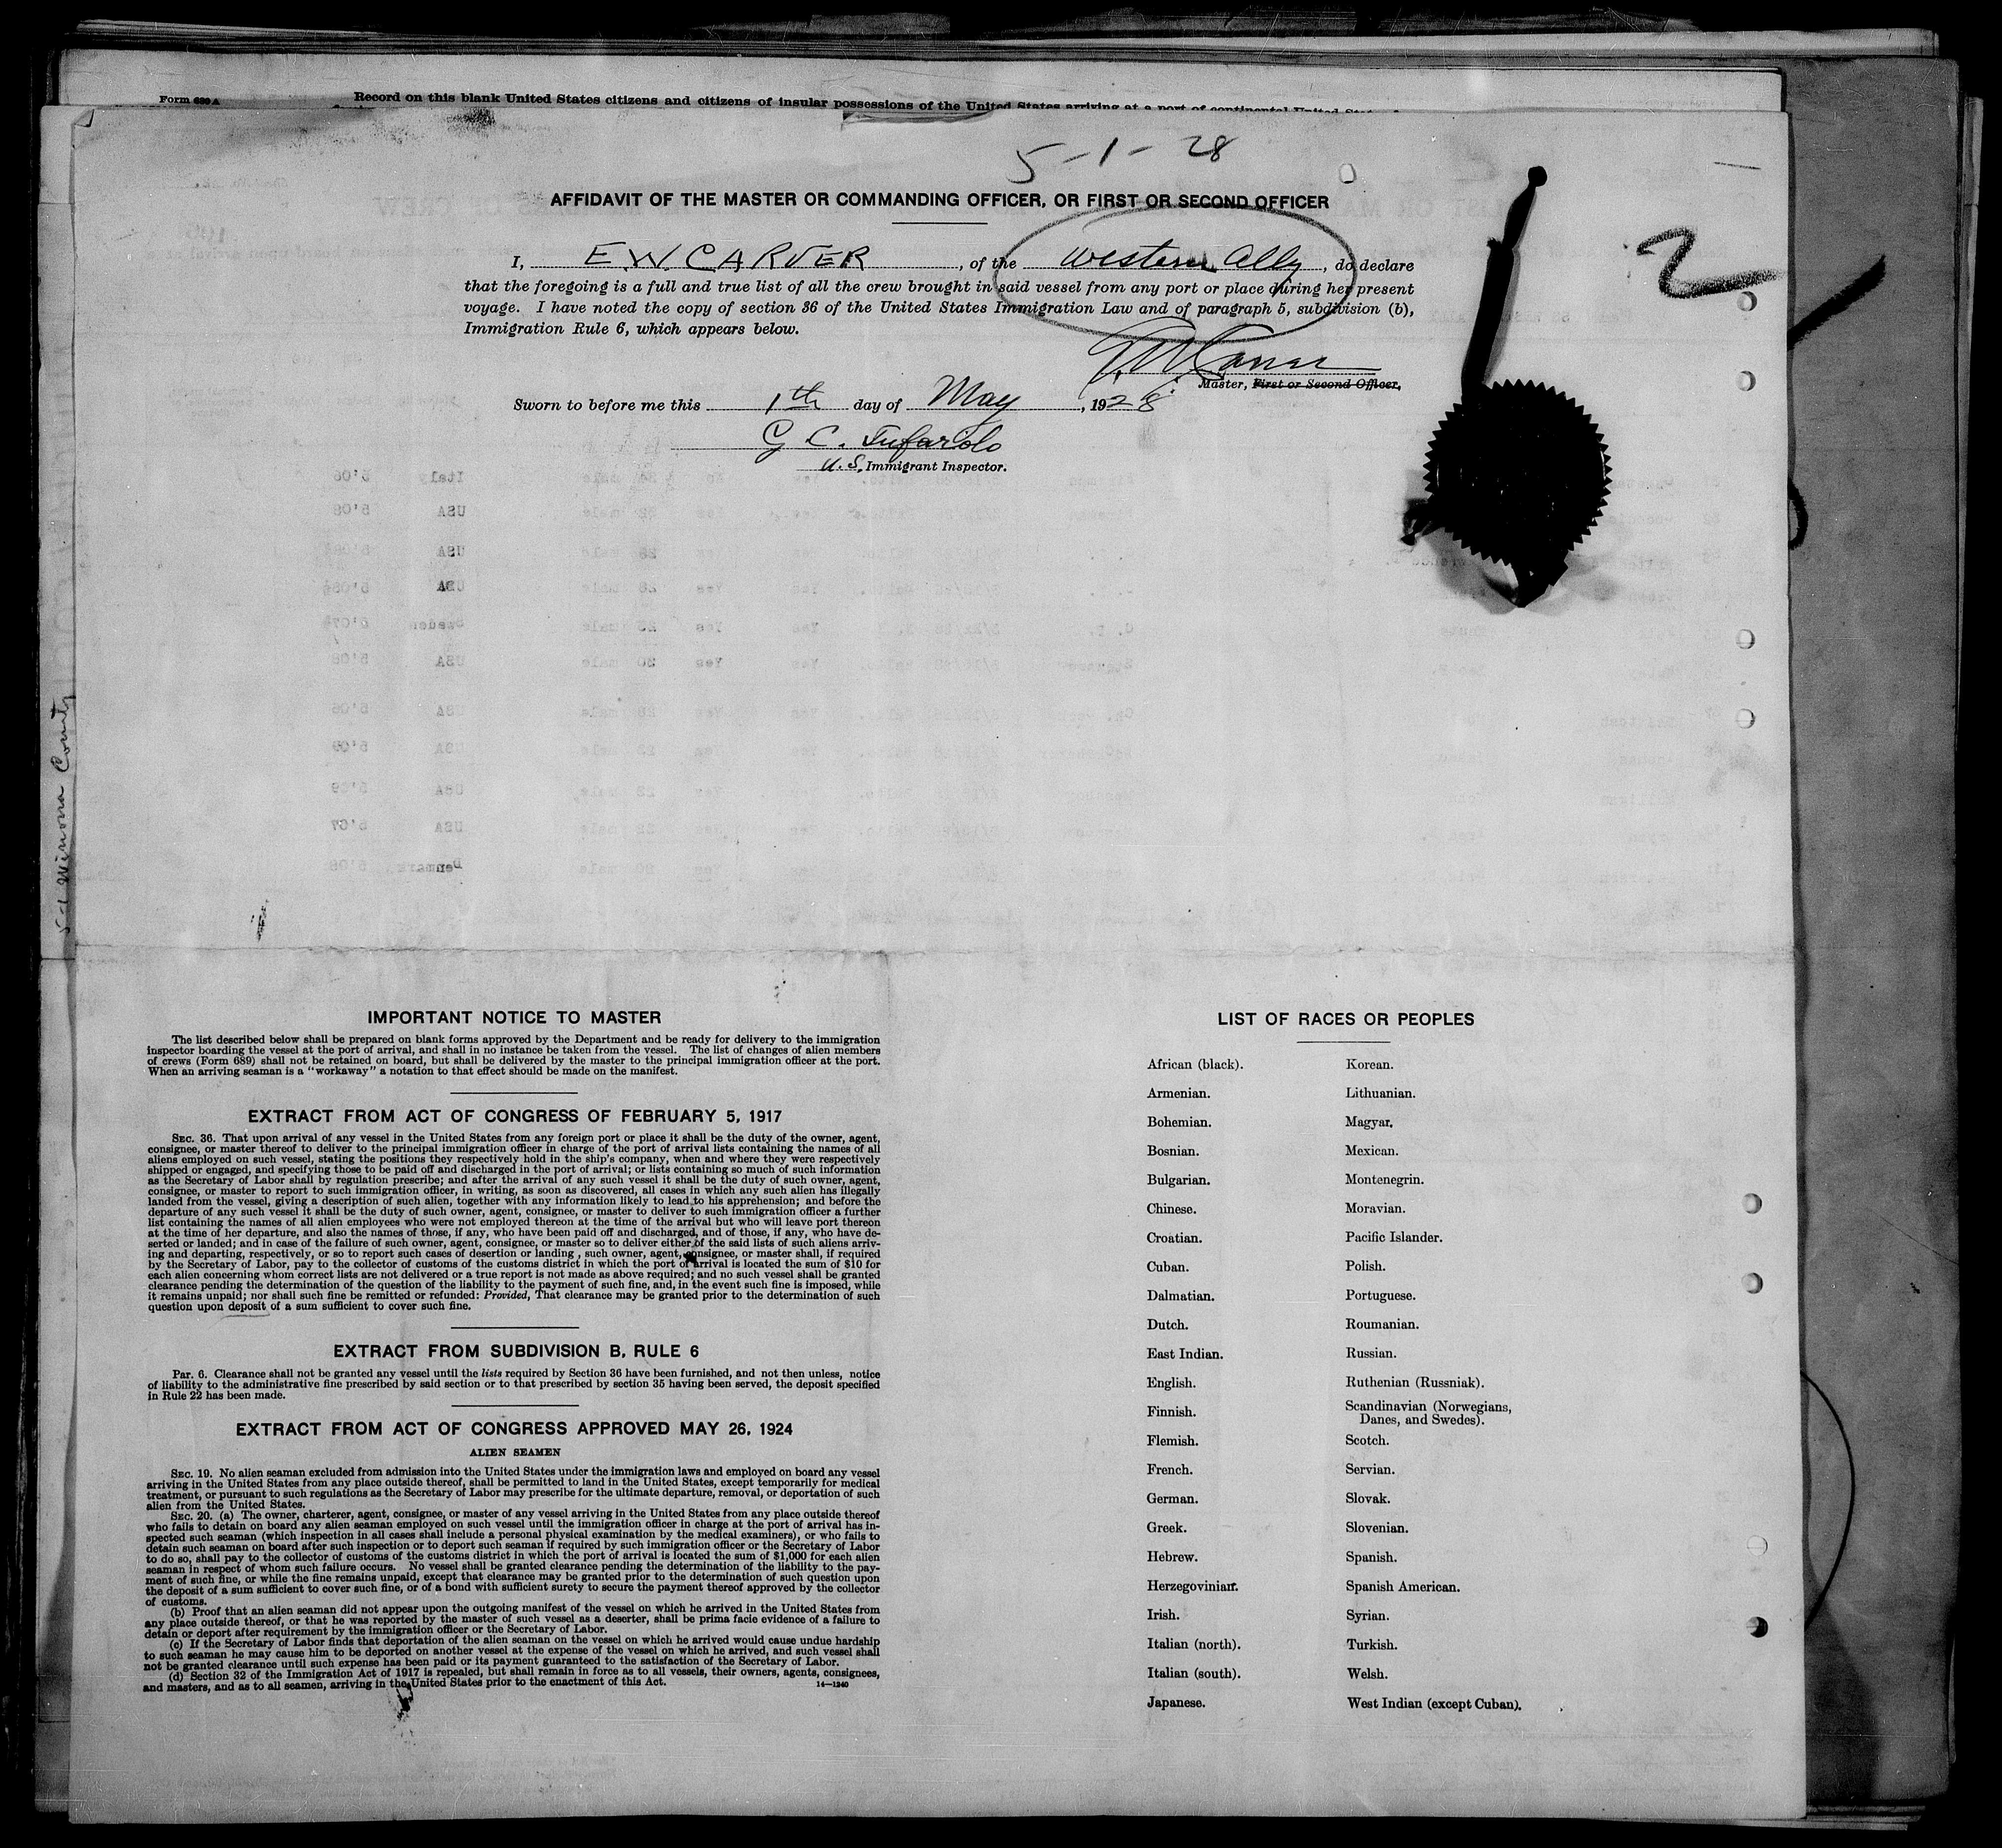 Form 689 A
Record on this blank United States citizens and citizens of insular possessions of the United States arriving at a port of continental United
5-1-28
AFFIDAVIT OF THE MASTER OR COMMANDING OFFICER, OR FIRST OR SECOND OFFICER
2
I, E.W. CARVER, of the Western Ally, do declare
that the foregoing is a full and true list of all the crew brought in said vessel from any port or place during her present
voyage. I have noted the copy of section 36 of the United States Immigration Law and of paragraph 5, subdivision (b),
Immigration Rule 6, which appears below.
Master, First or Second Officer.
Sworn to before me this 1th day of May, 1928
G C. Tufarolo
U.S. Immigrant Inspector.
5-1 Winona County
IMPORTANT NOTICE TO MASTER
The list described below shall be prepared on blank forms approved by the Department and be ready for delivery to the immigration
inspector boarding the vessel at the port of arrival, and shall in no instance be taken from the vessel. The list of changes of alien members
of crews (Form 689) shall not be retained on board, but shall be delivered by the master to the principal immigration officer at the port.
When an arriving seaman is a "workaway" a notation to that effect should be made on the manifest.
EXTRACT FROM ACT OF CONGRESS OF FEBRUARY 5, 1917
SEC. 36. That upon arrival of any vessel in the United States from any foreign port or place it shall be the duty of the owner, agent,
consignee, or master thereof to deliver to the principal immigration officer in charge of the port of arrival lists containing the names of all
aliens employed on such vessel, stating the positions they respectively hold in the ship's company, when and where they were respectively
shipped or engaged, and specifying those to be paid off and discharged in the port of arrival; or lists containing so much of such information
as the Secretary of Labor shall by regulation prescribe; and after the arrival of any such vessel it shall be the duty of such owner, agent,
consignee, or master to report to such immigration officer, in writing, as soon as discovered, all cases in which any such alien has illegally
landed from the vessel, giving a description of such alien, together with any information likely to lead to his apprehension; and before the
departure of any such vessel it shall be the duty of such owner, agent, consignee, or master to deliver to such immigration officer a further
list containing the names of all alien employees who were not employed thereon at the time of the arrival but who will leave port thereon
at the time of her departure, and also the names of those, if any, who have been paid off and discharged, and of those, if any, who have de-
serted or landed; and in case of the failure of such owner, agent, consignee, or master so to deliver either of the said lists of such aliens arriv-
ing and departing, respectively, or so to report such cases of desertion or landing, such owner, agent, consignee, or master shall, if required
by the Secretary of Labor, pay to the collector of customs of the customs district in which the port of arrival is located the sum of $10 for
each alien concerning whom correct lists are not delivered or a true report is not made as above required; and no such vessel shall be granted
clearance pending the determination of the question of the liability to the payment of such fine, and, in the event such fine is imposed, while
it remains unpaid; nor shall such fine be remitted or refunded: Provided, That clearance may be granted prior to the determination of such
question upon deposit of a sum sufficient to cover such fine.
EXTRACT FROM SUBDIVISION B, RULE 6
PAR. 6. Clearance shall not be granted any vessel until the lists required by Section 36 have been furnished, and not then unless, notice
of liability to the administrative fine prescribed by said section or to that prescribed by section 35 having been served, the deposit specified
in Rule 22 has been made.
EXTRACT FROM ACT OF CONGRESS APPROVED MAY 26, 1924
ALIEN SEAMEN
SEC. 19. No alien seaman excluded from admission into the United States under the immigration laws and employed on board any vessel
arriving in the United States from any place outside thereof, shall be permitted to land in the United States, except temporarily for medical
treatment, or pursuant to such regulations as the Secretary of Labor may prescribe for the ultimate departure, removal, or deportation of such
alien from the United States.
SEC. 20. (a) The owner, charterer, agent, consignee, or master of any vessel arriving in the United States from any place outside thereof
who fails to detain on board any alien seaman employed on such vessel until the immigration officer in charge at the port of arrival has in-
spected such seaman (which inspection in all cases shall include a personal physical examination by the medical examiners), or who fails to
detain such seaman on board after such inspection or to deport such seaman if required by such immigration officer or the Secretary of Labor
to do so, shall pay to the collector of customs of the customs district in which the port of arrival is located the sum of $1,000 for each alien
seaman in respect of whom such failure occurs. No vessel shall be granted clearance pending the determination of the liability to the pay-
ment of such fine, or while the fine remains unpaid, except that clearance may be granted prior to the determination of such question upon
the deposit of a sum sufficient to cover such fine, or of a bond with sufficient surety to secure the payment thereof approved by the collector
of customs.
(b) Proof that an alien seaman did not appear upon the outgoing manifest of the vessel on which he arrived in the United States from
any place outside thereof, or that he was reported by the master of such vessel as a deserter, shall be prima facie evidence of a failure to
detain or deport after requirement by the immigration officer or the Secretary of Labor.
(c) If the Secretary of Labor finds that deportation of the alien seaman on the vessel on which he arrived would cause undue hardship
to such seaman he may cause him to be deported on another vessel at the expense of the vessel on which he arrived, and such vessel shall
not be granted clearance until such expense has been paid or its payment guaranteed to the satisfaction of the Secretary of Labor.
(d) Section 32 of the Immigration Act of 1917 is repealed, but shall remain in force as to all vessels, their owners, agents, consignees,
and masters, and as to all seamen, arriving in the United States prior to the enactment of this Act.
14—1240
LIST OF RACES OR PEOPLES
African (black).
Armenian.
Bohemian.
Bosnian.
Bulgarian.
Chinese.
Croatian.
Cuban.
Dalmatian.
Dutch.
East Indian.
English.
Finnish.
Flemish.
French.
German.
Greek.
Hebrew.
Herzegovinian.
Irish.
Italian (north).
Italian (south).
Japanese.
Korean.
Lithuanian.
Magyar.
Mexican.
Montenegrin.
Moravian.
Pacific Islander.
Polish.
Portuguese.
Roumanian.
Russian.
Ruthenian (Russniak).
Scandinavian (Norwegians,
Danes, and Swedes).
Scotch.
Servian.
Slovak.
Slovenian.
Spanish.
Spanish American.
Syrian.
Turkish.
Welsh.
West Indian (except Cuban).